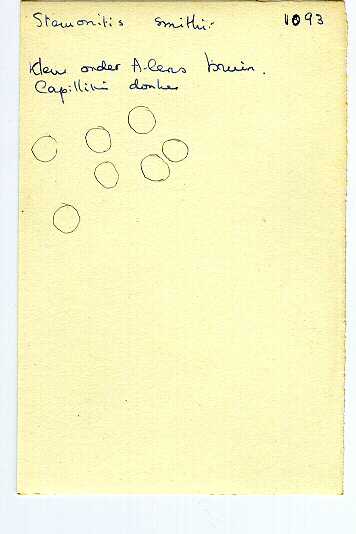 Stemonitis smithii 11093
Kleur onder A-lens bruin.
Capillitium donker